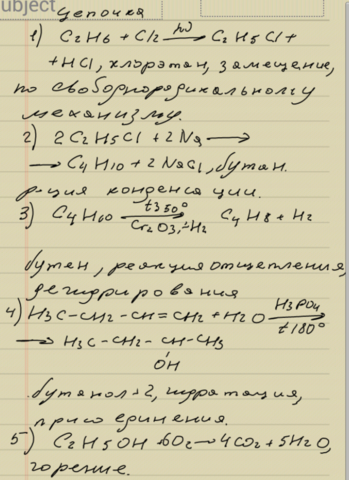 ubject
цепочка
1) C2H6 + Cl2 hν→ C2H5Cl +
+ HCl, хлорэтан, замещение,
по свободнорадикальному
механизму.
2) 2C2H5Cl + 2Na →
→ C4H10 + 2NaCl, бутан.
р-ция конденсации.
3) C4H10 t350° Cr2O3, -H2 → C4H8 + H2
бутен, реакция отщепления,
дегидрирования
4) H3C-CH2-CH=CH2 + H2O H3PO4 t180° →
→ H3C-CH2-CH-CH3
OH
бутанол-2, гидратация,
присоединения.
5) C2H5OH + 6O2 → 4CO2 + 5H2O,
горение.